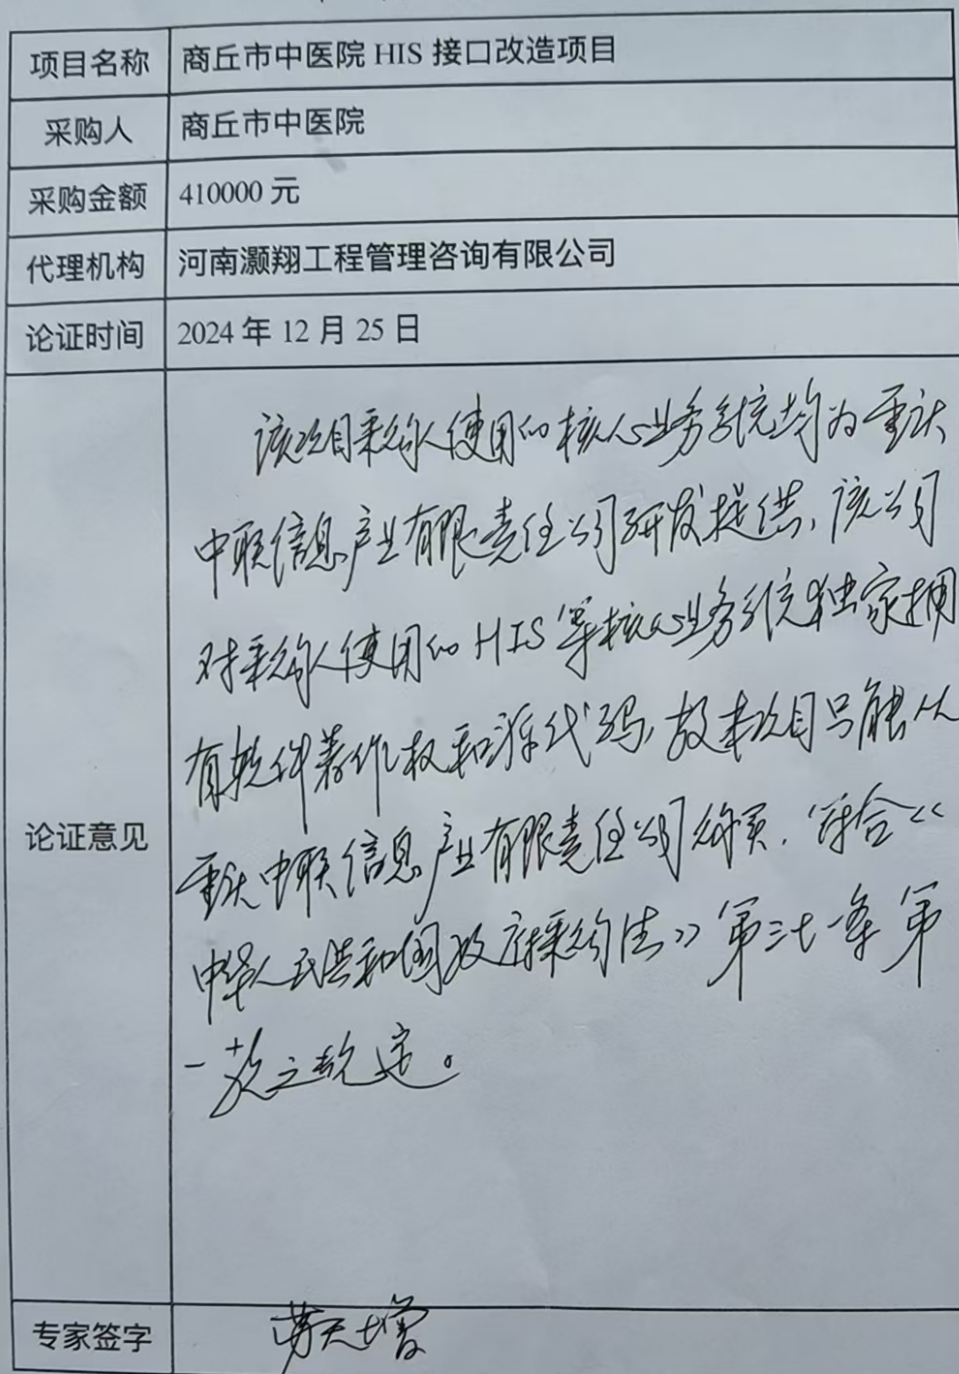 项目名称 商丘市中医院 HIS 接口改造项目
采购人 商丘市中医院
采购金额 410000 元
代理机构 河南灏翔工程管理咨询有限公司
论证时间 2024 年 12 月 25 日
论证意见
该项目采购人使用的核心业务系统均为重庆
中联信息产业有限责任公司研发提供，该公司
对采购人使用的HIS等核心业务系统独家拥
有软件著作权和源代码，故本项目只能从
重庆中联信息产业有限责任公司购买，符合《
中华人民共和国政府采购法》第三十一条第
一款之规定。
专家签字